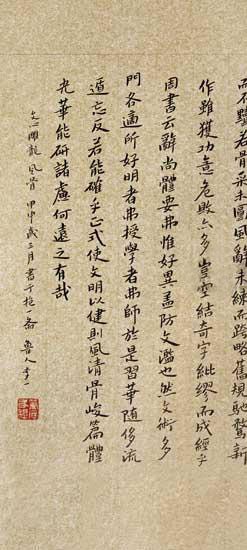 而不黷若骨采未圓風辭未練而跨略舊規馳騖新
作雖獲功意危敗亦多豈空結奇字紕繆而成經乎
周書云辭尚體要弗惟好異蓋防文濫也然文術多
門各適所好明者弗授學者弗師於是習華隨侈流
遁忘反若能確乎正式使文明以健則風清骨峻篇體
光華能研諸慮何遠之有哉
文心雕龍 風骨 甲申歲三月書于 齋 魯人李一